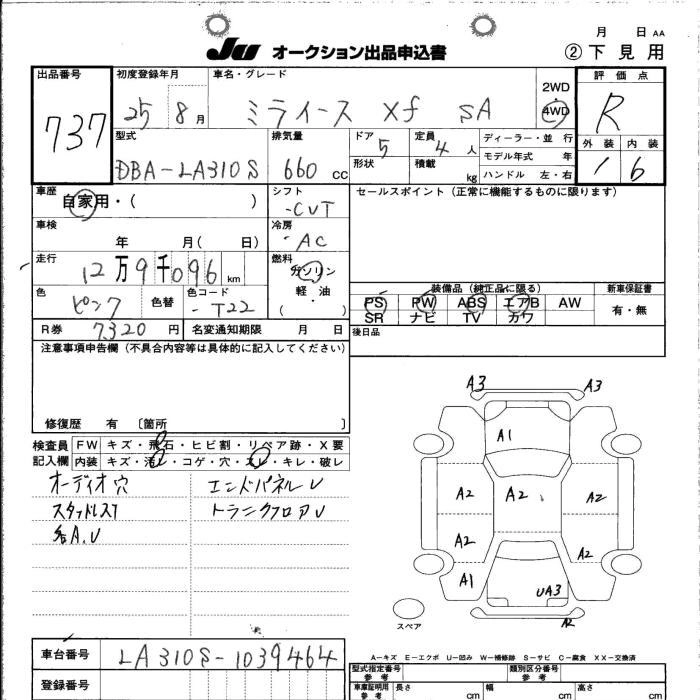 月 日 AA
JU オークション出品申込書 ② 下見用
出品番号 初度登録年月 車名・グレード 2WD 4WD 評価点
737 25 8月 ミライース Xf SA R
型式 排気量 ドア 5 定員 4人 ディーラー・並行 外装 内装
DBA-LA310S 660cc 形状 積載 kg モデル年式 年 1 6
ハンドル 左・右
車歴 自家用・( ) シフト -CVT セールスポイント (正常に機能するものに限ります)
車検 年 月( 日) 冷房 -AC
走行 12万9千096km 燃料 ガソリン
軽油・( )
装備品 (純正品に限る) 新車保証書
色 ピンク 色替 色コード -T22 PS PW ABS エアB AW 有・無
SR ナビ TV カワ
R券 7320円 名変通知期限 月 日 後日品
注意事項申告欄 (不具合内容等は具体的に記入してください)
修復歴 有 〔箇所 〕
検査員 FW キズ・飛石・ヒビ割・リペア跡・X要
記入欄 内装 キズ・汚レ・コゲ・穴・スレ・キレ・破レ
オーディオ穴 エンドパネルU
スタッドレス7 トランクフロアU
各A.U
A3 A3
A1
A2 A2 A2
A2 A2
A1 UA3
A2
スペア
A-キズ E-エクボ U-凹み W-補修跡 S-サビ C-腐食 XX-交換済
車台番号 LA310S-1039464 型式指定番号 参考 類別区分番号 参考
登録番号 車庫証明用 参考 長さ cm 幅 cm 高さ cm